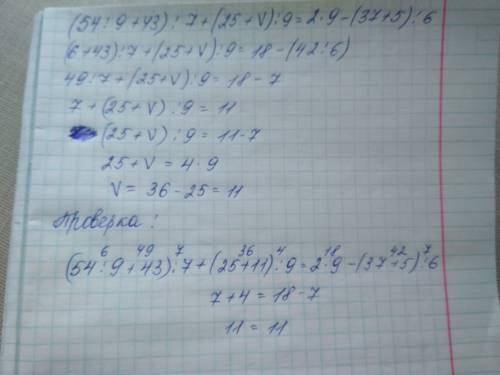 (54:9+43):7+(25+v):9=2·9-(37+5):6
(6+43):7+(25+v):9=18-(42:6)
49:7+(25+v):9=18-7
7+(25+v):9=11
(25+v):9=11-7
25+v=4·9
v=36-25=11
Проверка:
6 49 7 36 4 18 42 7
(54:9+43):7+(25+11):9=2·9-(37+5):6
7+4=18-7
11=11